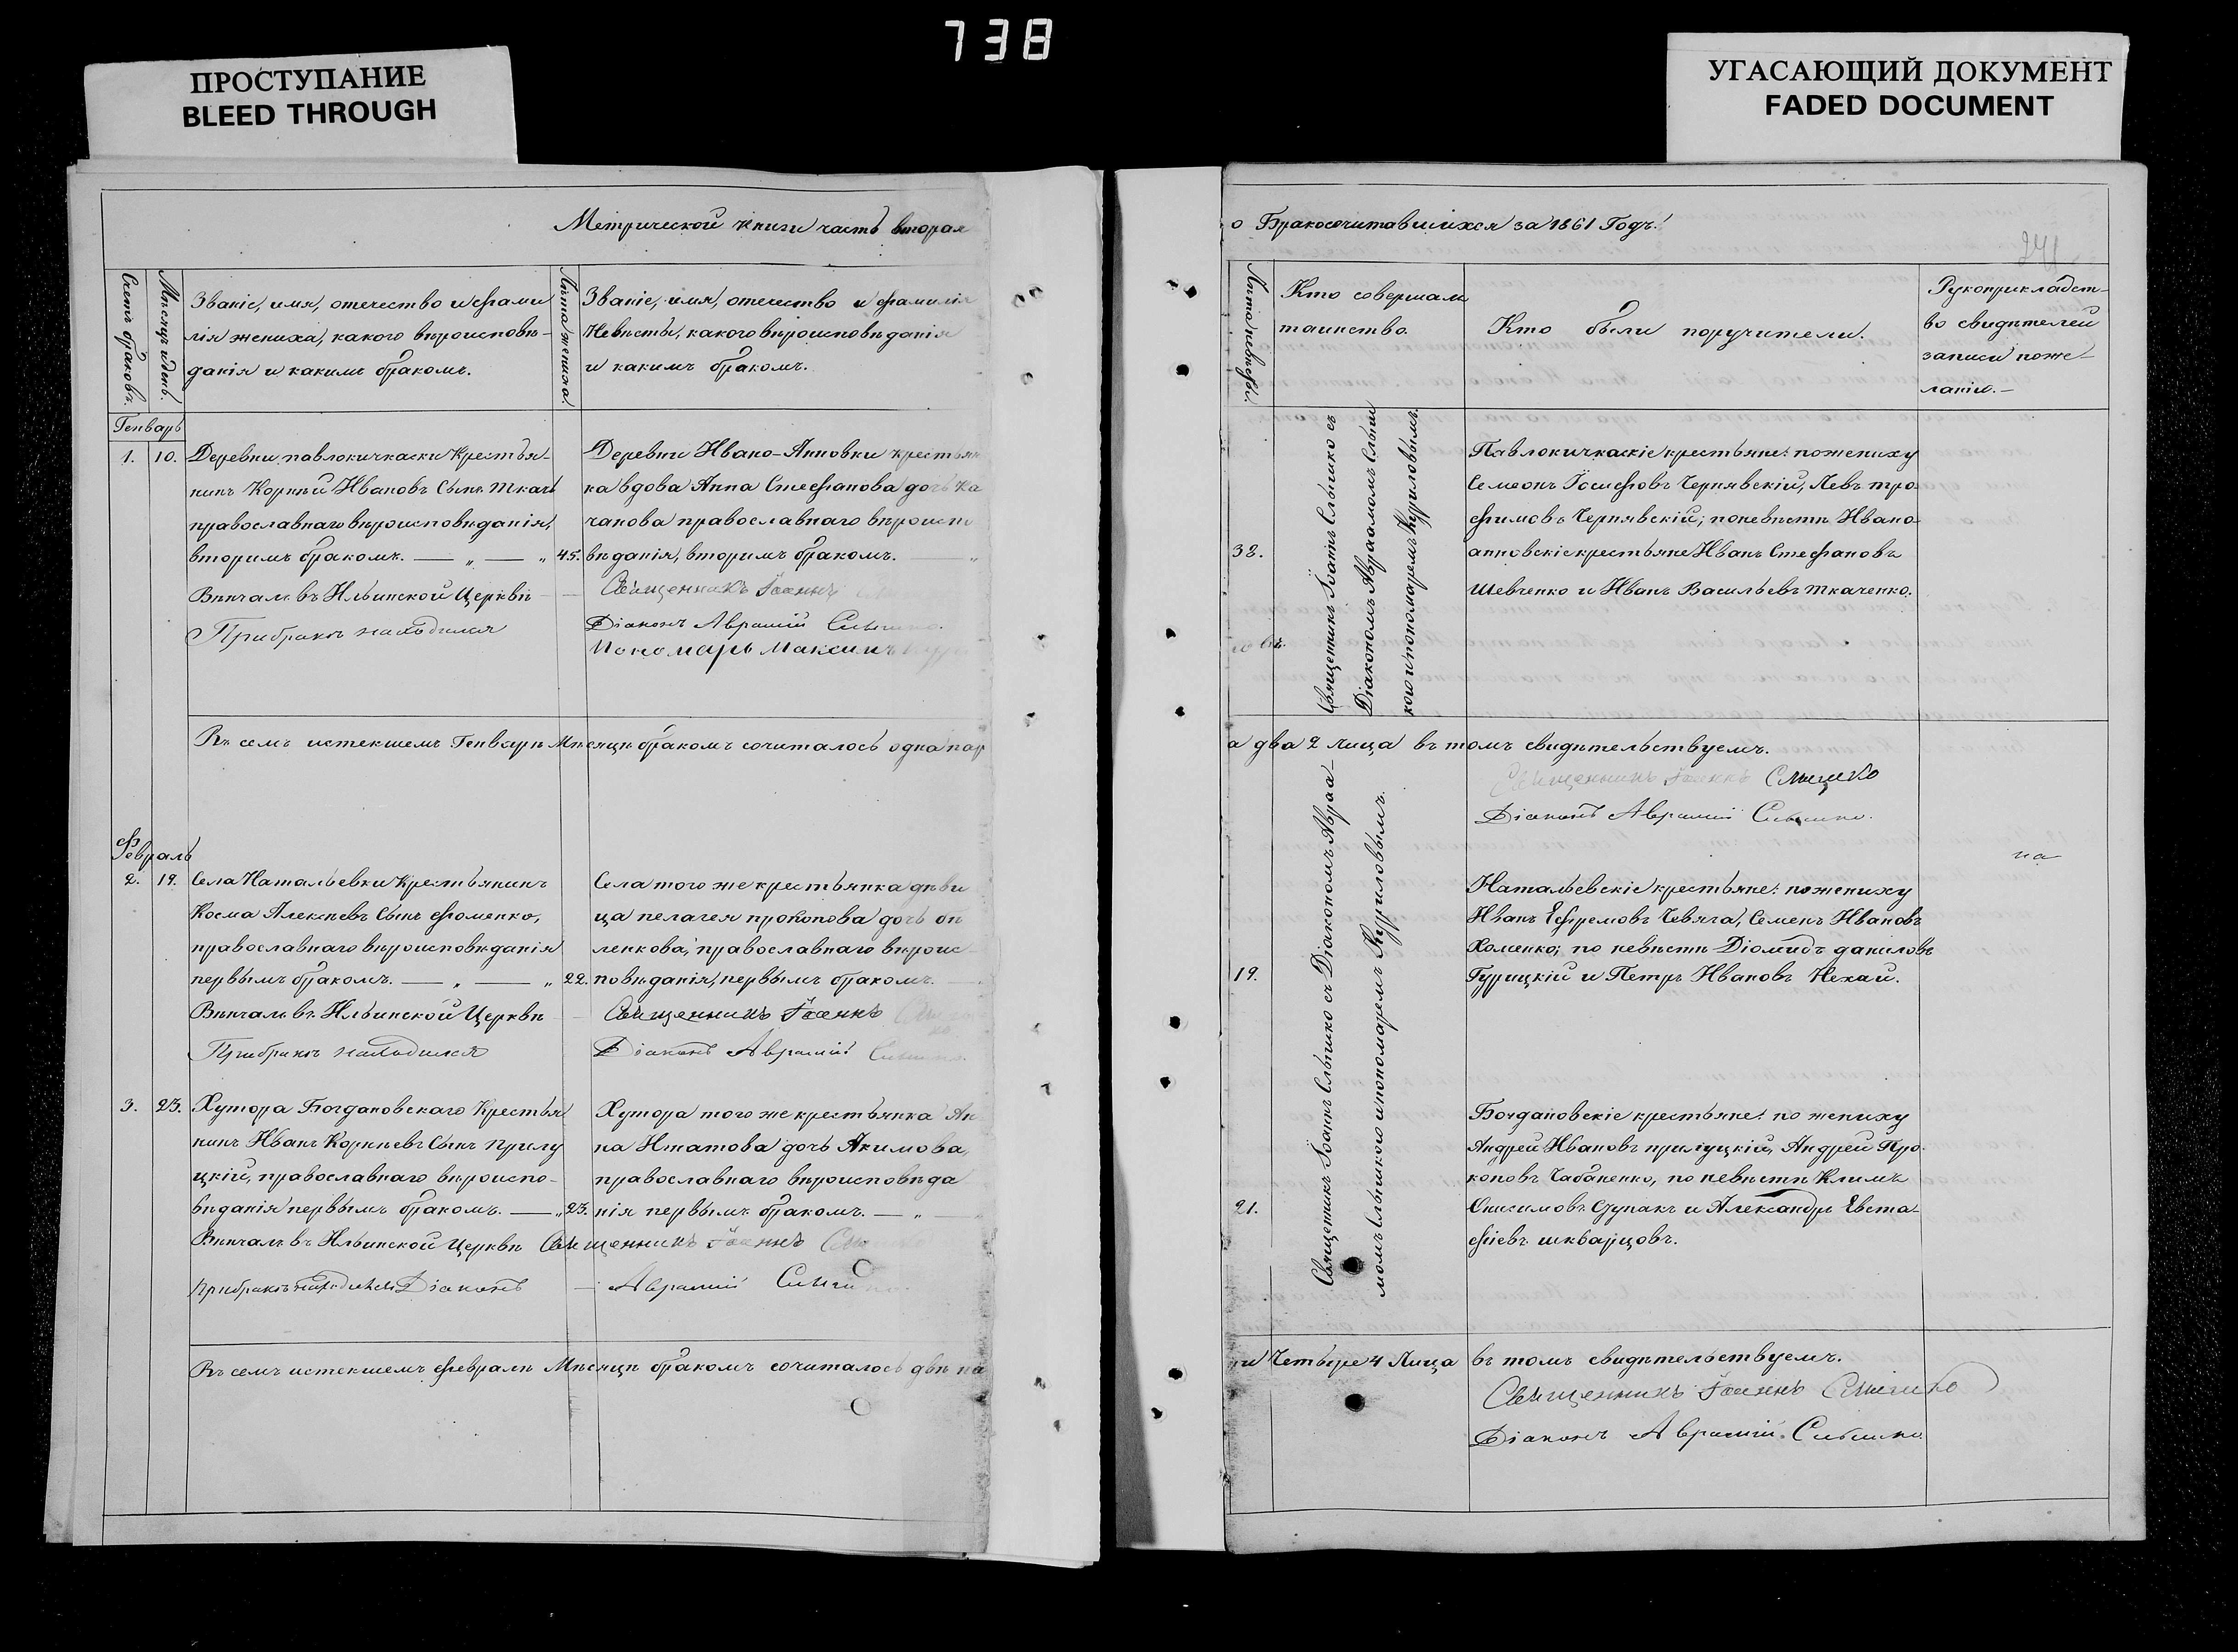 738
ПРОСТУПАНИЕ
BLEED THROUGH
УГАСАЮЩИЙ ДОКУМЕНТ
FADED DOCUMENT
Метрической книги часть вторая
о Бракосочитавшихся за 1861 Годъ.
Счетъ браковъ.
Мѣсяцъ и день.
Званіе, имя, отечество и фами
лія жениха, какого вѣроисповѣ-
данія и какимъ бракомъ.
Лѣта жениха.
Званіе, имя, отечество и фамилія
Невѣсты, какого вѣроисповѣданія
и какимъ бракомъ.
Лѣта невѣсты.
Кто совершалъ
таинство.
Кто были поручители.
Рукоприкладст-
во свидѣтелей
записи поже-
ланію.-
Генварь
1. 10.
Деревни павлокичкаски Крестья-
нинъ Корній Ивановъ Сынъ Ткачъ
православнаго вѣроисповѣданія,
вторимъ бракомъ. — „ — „ 45.
Вѣнчалъ въ Ильинской Церквѣ
При бракѣ находился
Деревни Ивано-Анновки крестьян
ка вдова Анна Стефанова дочь Ка
чанова православнаго вѣроиспо
вѣданія, вторимъ бракомъ.
Священникъ Іоаннъ
Діаконъ Аврамій
Пономарь Максимъ
38.
Священникъ Іоаннъ съ
Діакономъ Авраамомъ
и пономаремъ Куриловымъ.
Павлокичкаскіе крестьяне: по жениху
Семеонъ Іосифовъ Чернявскій, Левъ тро
фимовъ Чернявскій; по невѣсти Ивано
анновскіе крестьяне Иванъ Стефановъ
Шевченко и Иванъ Васильевъ Ткаченко.
Въ семъ истекшемъ Генварѣ Мѣсяцѣ бракомъ сочиталось одна пар
а два 2 лица въ томъ свидѣтельствуемъ.
Священникъ Іоаннъ
Діаконъ Аврамій
Февраль
2. 19.
Села Натальевки Крестьянинъ
Косма Алексѣевъ Сынъ Фоменко,
православнаго вѣроисповѣданія
первымъ бракомъ. — „ — „ 22.
Вѣнчалъ въ Ильинской Церквѣ
При бракѣ находился
Села того же крестьянка дѣви
ца пелагея прокопова дочь
ленкова, православнаго вѣроис
повѣданія, первымъ бракомъ.
Священникъ Іоаннъ
Діаконъ Аврамій
19.
Священникъ Іоаннъ съ Діакономъ Авраа-
момъ и пономаремъ Куриловымъ.
Натальевскіе крестьяне: по жениху
Иванъ Ефремовъ Чевяга, Семенъ Ивановъ
Хоменко; по невѣсти Діомидъ даниловъ
Гурицкій и Петръ Ивановъ Нехай.
на
3. 23.
Хутора Богдановскаго Крестья
нинъ Иванъ Корнѣевъ Сынъ Прилу
цкій, православнаго вѣроиспо-
вѣданія первымъ бракомъ. — „ 23.
Вѣнчалъ въ Ильинской Церквѣ Священникъ Іоаннъ
При бракѣ находился Діаконъ — Аврамій
Хутора того же крестьянка Ан
на Игнатова дочь Акимова,
православнаго вѣроисповѣда
нія первымъ бракомъ. — „ —
21.
Богдановскіе крестьяне: по жениху
Андрей Ивановъ прилуцкій, Андрей Про
коповъ Чабаненко, по невѣсти Климъ
Онисимовъ Ступакъ и Александръ Евста-
фіевъ шкварцовъ.
Въ семъ истекшемъ февралѣ Мѣсяцѣ бракомъ сочиталось двѣ па
ри Четыре 4 Лица въ томъ свидѣтельствуемъ.
Священникъ Іоаннъ
Діаконъ Аврамій